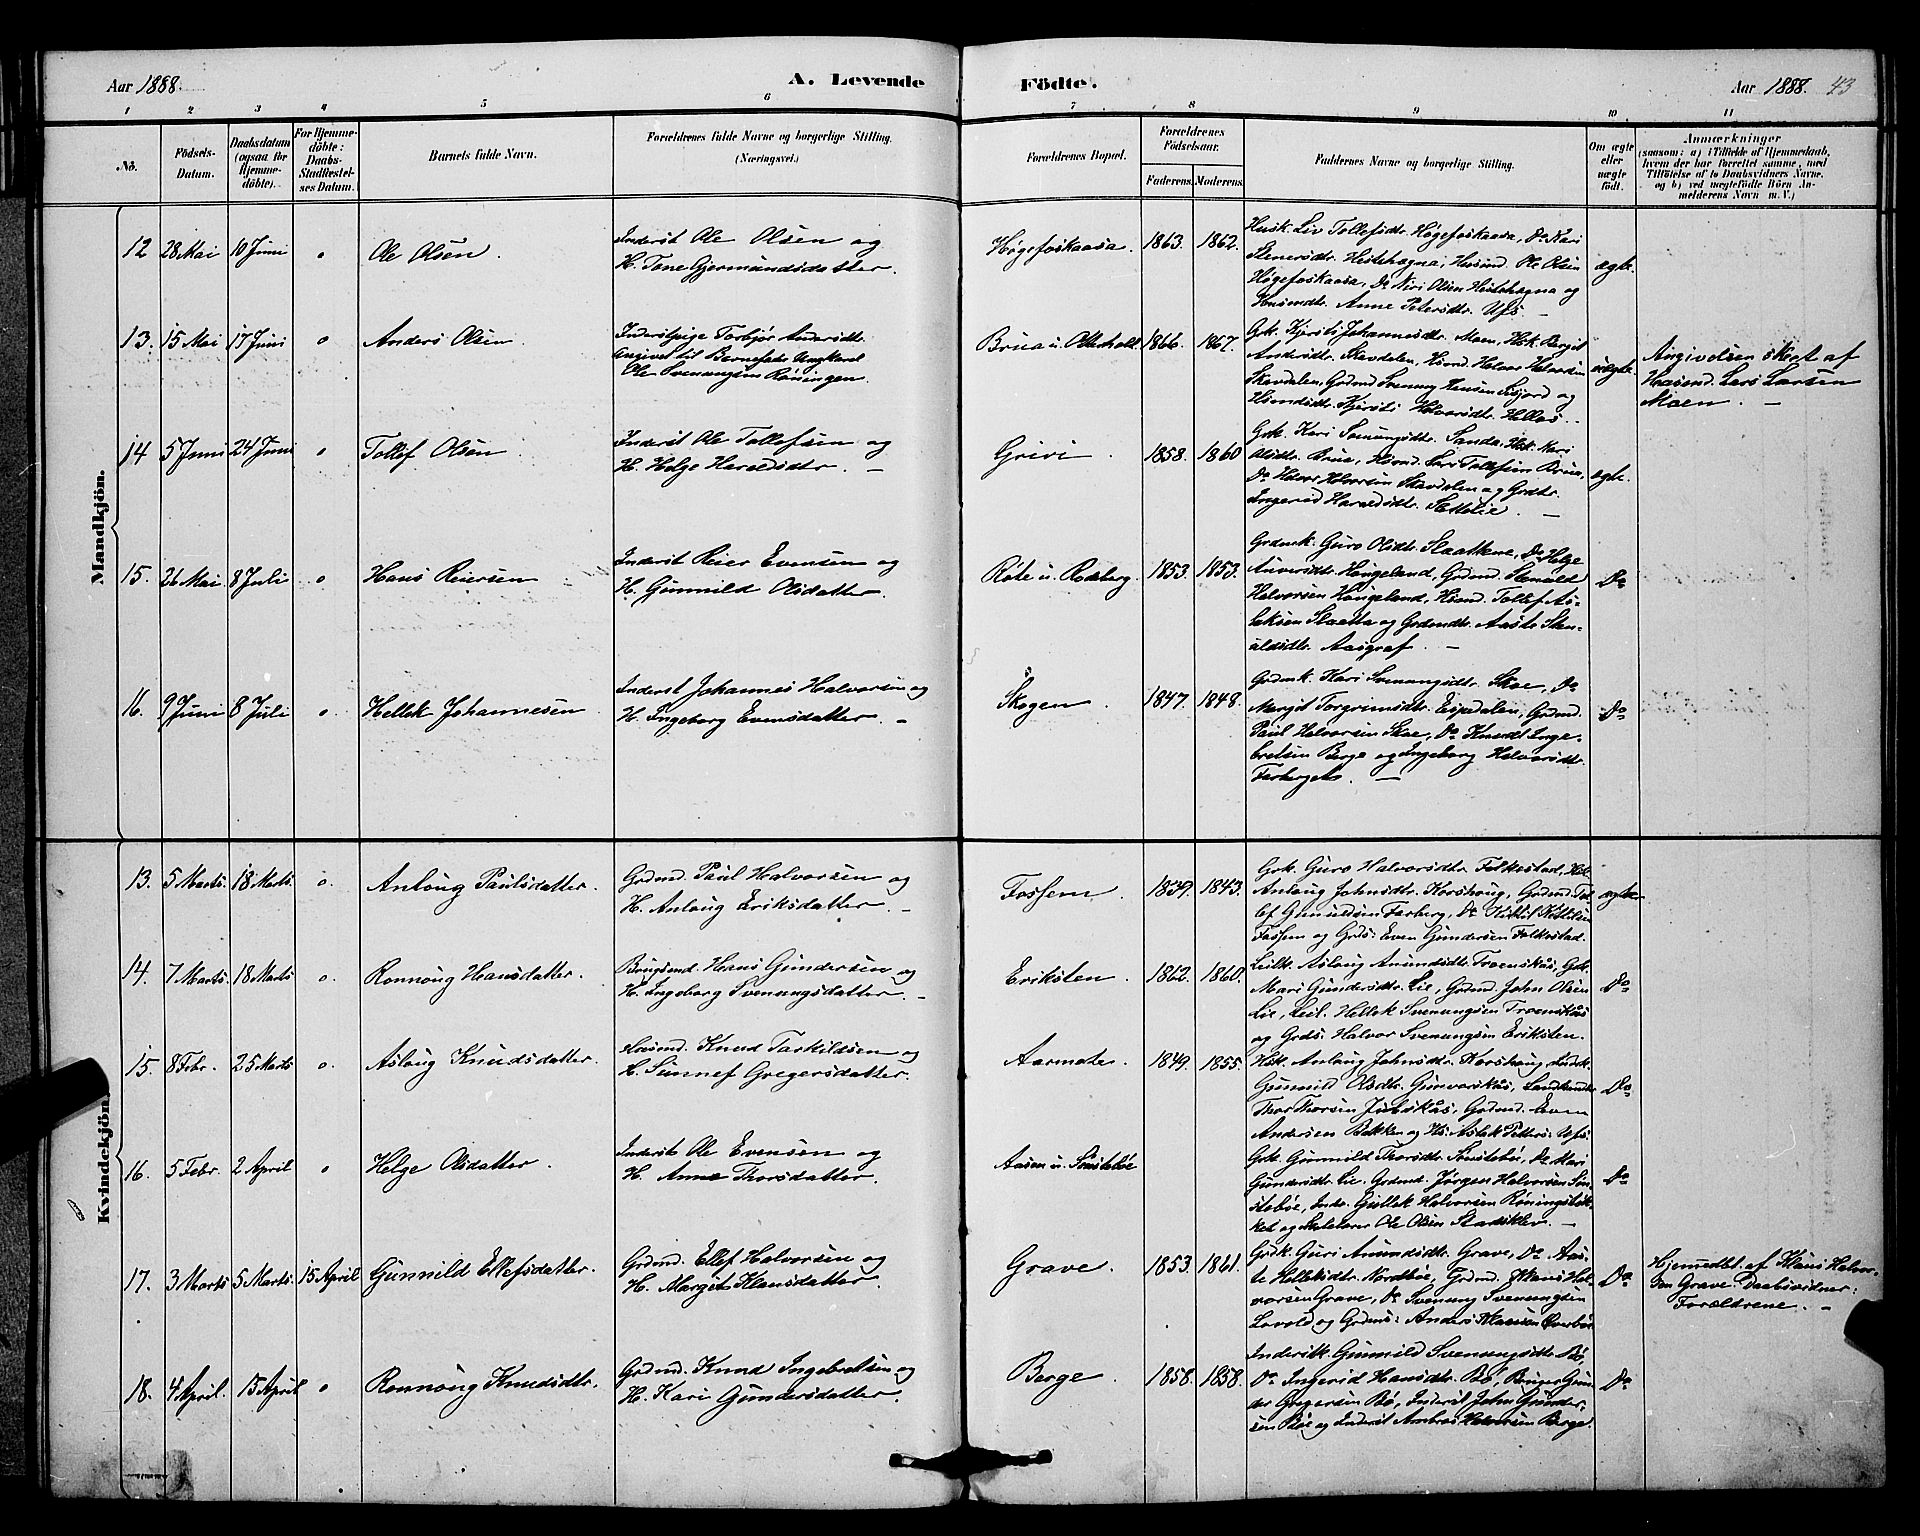 Aar 1888.
A. Levende
Födte.
Aar 1888. 43
1 2 3 4 5 6 7 8 9 10 11
No.
Födsels-
Datum.
Daabsdatum
(ogsaa for
Hjemme-
döbte).
For Hjemme-
döbte:
Daabs-
Stadfæstel-
ses Datum.
Barnets fulde Navn.
Forældrenes fulde Navne og borgerlige Stilling.
(Næringsvei.)
Forældrenes Bopæl.
Forældrenes
Födselsaar.
Faderens. Moderens.
Faddernes Navne og borgerlige Stilling.
Om ægte
eller
uægte
født.
Anmærkninger
(saasom: a) i Tilfælde af Hjemmedaab,
hvem der har forrettet samme, med
Tilföielse af to Daabsvidners Navne.
og b) ved uægtefödte Börn An-
melderens Navn m. V.)
Mandkjön.
12 28 Mai 10 Juni o Ole Olsen.
Inderst Ole Olsen og
H. Tone Gjermundsdatter.
Høgefoskaasa. 1863. 1862.
Husk. Liv Tollefsdtr. Høgefoskaasa, Do Kari
Stenersdtr. Hestehagna, Husmd. Ole Olsen
Høgefoskaasa, Do Olsen Hestehagna og
Husmdtr. Anne Petersdtr. Ufs. –
ægte.
13. 15 Mai 17 Juni o Anders Olsen
Inderstpige Torbjør Andersdtr.
angivet til Barnefader Ungkarl
Ole Svenungsen Røningen.
Brua u. Otterholt. 1866. 1867.
Grk. Kjersti Johannesdtr. Moen, Hsk. Bergit
Andersdtr. Skavdalen, Hsmd. Halvor Halvorsen
Skavdalen, Grdmd. Svenung Hansen og
Hsmdsdtr. Kjersti Halvorsdtr. Hellos.
uægte.
Angivelsen skeet af
Husmd. Lars Larsen
Moen. –
14 5 Juni 24 Juni o Tollef Olsen
Inderst Ole Tollefsen og
H. Helge Haraldsdtr. –
Grivi. 1858. 1860
Grk. Kari Svenungsdtr. Sanda, Hsk. Kari
Olsdtr. Brua, Hsmd. Lars Tollefsen Brua,
Do Halvor Halvorsen Skavdalen og Grdtr.
Ingerid Haraldsdtr. –
ægte.
15. 26 Mai 8 Juli o Hans Reiersen
Inderst Reier Evensen og
H. Gunnild Olsdatter.
Røte u. Rodeberg. 1853. 1853.
Grdmk. Guro Olsdtr. Slaattene, Do Helge
Haugeland, Grdmd. Stenuld
Halvorsen Haugeland, Hsmd. Tollef As-
laksen Slaatta og Grdmdtr. Aaste Sten-
uldsdtr. Aasgraf. –
Do
16. 9 Juni 8 Juli o. Hellek Johannesen
Inderst Johannes Halvorsen og
H. Ingeborg Evensdatter. –
Skogen 1847. 1848.
Grdmk. Kari Svenungsdtr. Skoe, Do
Margit Torgrimsdtr. Espedalen, Grdmd.
Paul Halvorsen Skoe, Do Knudt Inge-
bretsen Berge og Ingeborg Halvorsdtr.
Farberget. –
Do
Kvindekjön.
13. 5 Marts. 18 Marts. o. Anlaug Paulsdatter.
Grdmd. Paul Halvorsen og
H. Anlaug Eriksdatter. –
Fossem. 1839. 1843.
Grk. Guro Halvorsdtr. Folkestad, Hsk.
Anlaug Johnsdtr. Korshaug, Grdmd. Tol-
lef Gunuldsen Farberg, Do Kittil Kittilsen
Fossem og Grds: Even Gundersen Folkestad.
ægte
14. 7 Marts. 18 Marts. o. Ronnoug Hansdatter.
Brugsmd. Hans Gundersen og
H. Ingeborg Svenungsdatter. –
Eriksten. 1862. 1860.
Leilk. Aslaug Amundsdtr. Troenskås, Grk.
Mari Gundersdtr. Lie, Grdmd. John Olsen
Lie, Leil. Hellek Svenungsen Troenskås
og Grds: Halvor Svenungsen Eriksten.
Do
15. 8 Febr. 25 Marts o. Aslaug Knudsdatter.
Husmd. Knud Tarkildsen og
H. Sünnef Gregersdatter.
Aarmote. 1849. 1855.
Hsk. Anlaug Johnsdtr. Korshaug,
Gunnild Olsdtr. Gunvarskås, Landhandler
Thor Thorsen Jubskås, Grdmd. Even
Andersen Bakken og Hs: Aslak Petters: Ufs.
Do
16. 5 Febr. 2 April o Helge Olsdatter.
Inderst Ole Evensen og
H. Anne Thorsdatter.
Aasen u. Sønstebøe
Grk. Gunnild Thorsdtr. Sønstebøe, Do Mari
Gundersdtr. Lie. Grdmd. Jörgen Halvorsen Søn-
stebøe, Inds. Gullek Halvorsen Røningsbak-
ket og Ole Olsen –
Do
17. 3 Marts. 5 Marts. 15 April Gunnild Ellefsdatter.
Grdmd. Ellef Halvorsen og
H. Margit Klausdatter.
Grave. 1853. 1861.
Grdk. Guri Amundsdtr. Grave, Do Aas-
te Helleksdtr. Nordbøe, Grdmd. Klaus Hal-
vorsen Grave, Do Svenung Svenungsen
Lovold og Grdms: Anders Klausen Overbøe
Do
Hjemmedbt. af Klaus Halvor-
sen Grave. Daabsvidner:
Forældrene. –
18. 4 April. 15 April o Ronnoug Knudsdtr.
Grdmd. Knud Ingebretsen og
H. Kari Gundersdatter.
Berge. 1858. 1858.
Inderstk. Gunnild Svenungsdtr. Bø,
Do Ingerid Hansdtr. Bø, Bruger Gun-
der Gregersen Bø, Inderst John Gunder-
sen Bøe og Inderst Halvorsen Berge.
Do